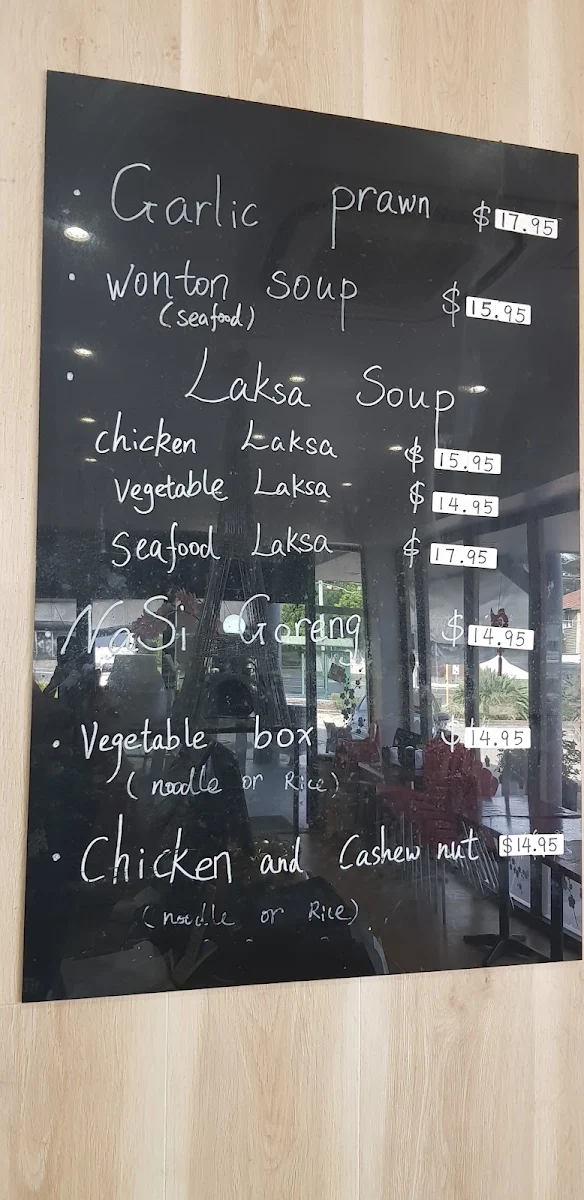 • Garlic prawn $17.95
• wonton soup $15.95
(seafood)
• Laksa Soup
chicken Laksa $15.95
Vegetable Laksa $14.95
Seafood Laksa $17.95
NaSi Goreng $14.95
• Vegetable box $14.95
(noodle or Rice)
• Chicken and Cashew nut $14.95
(noodle or Rice)